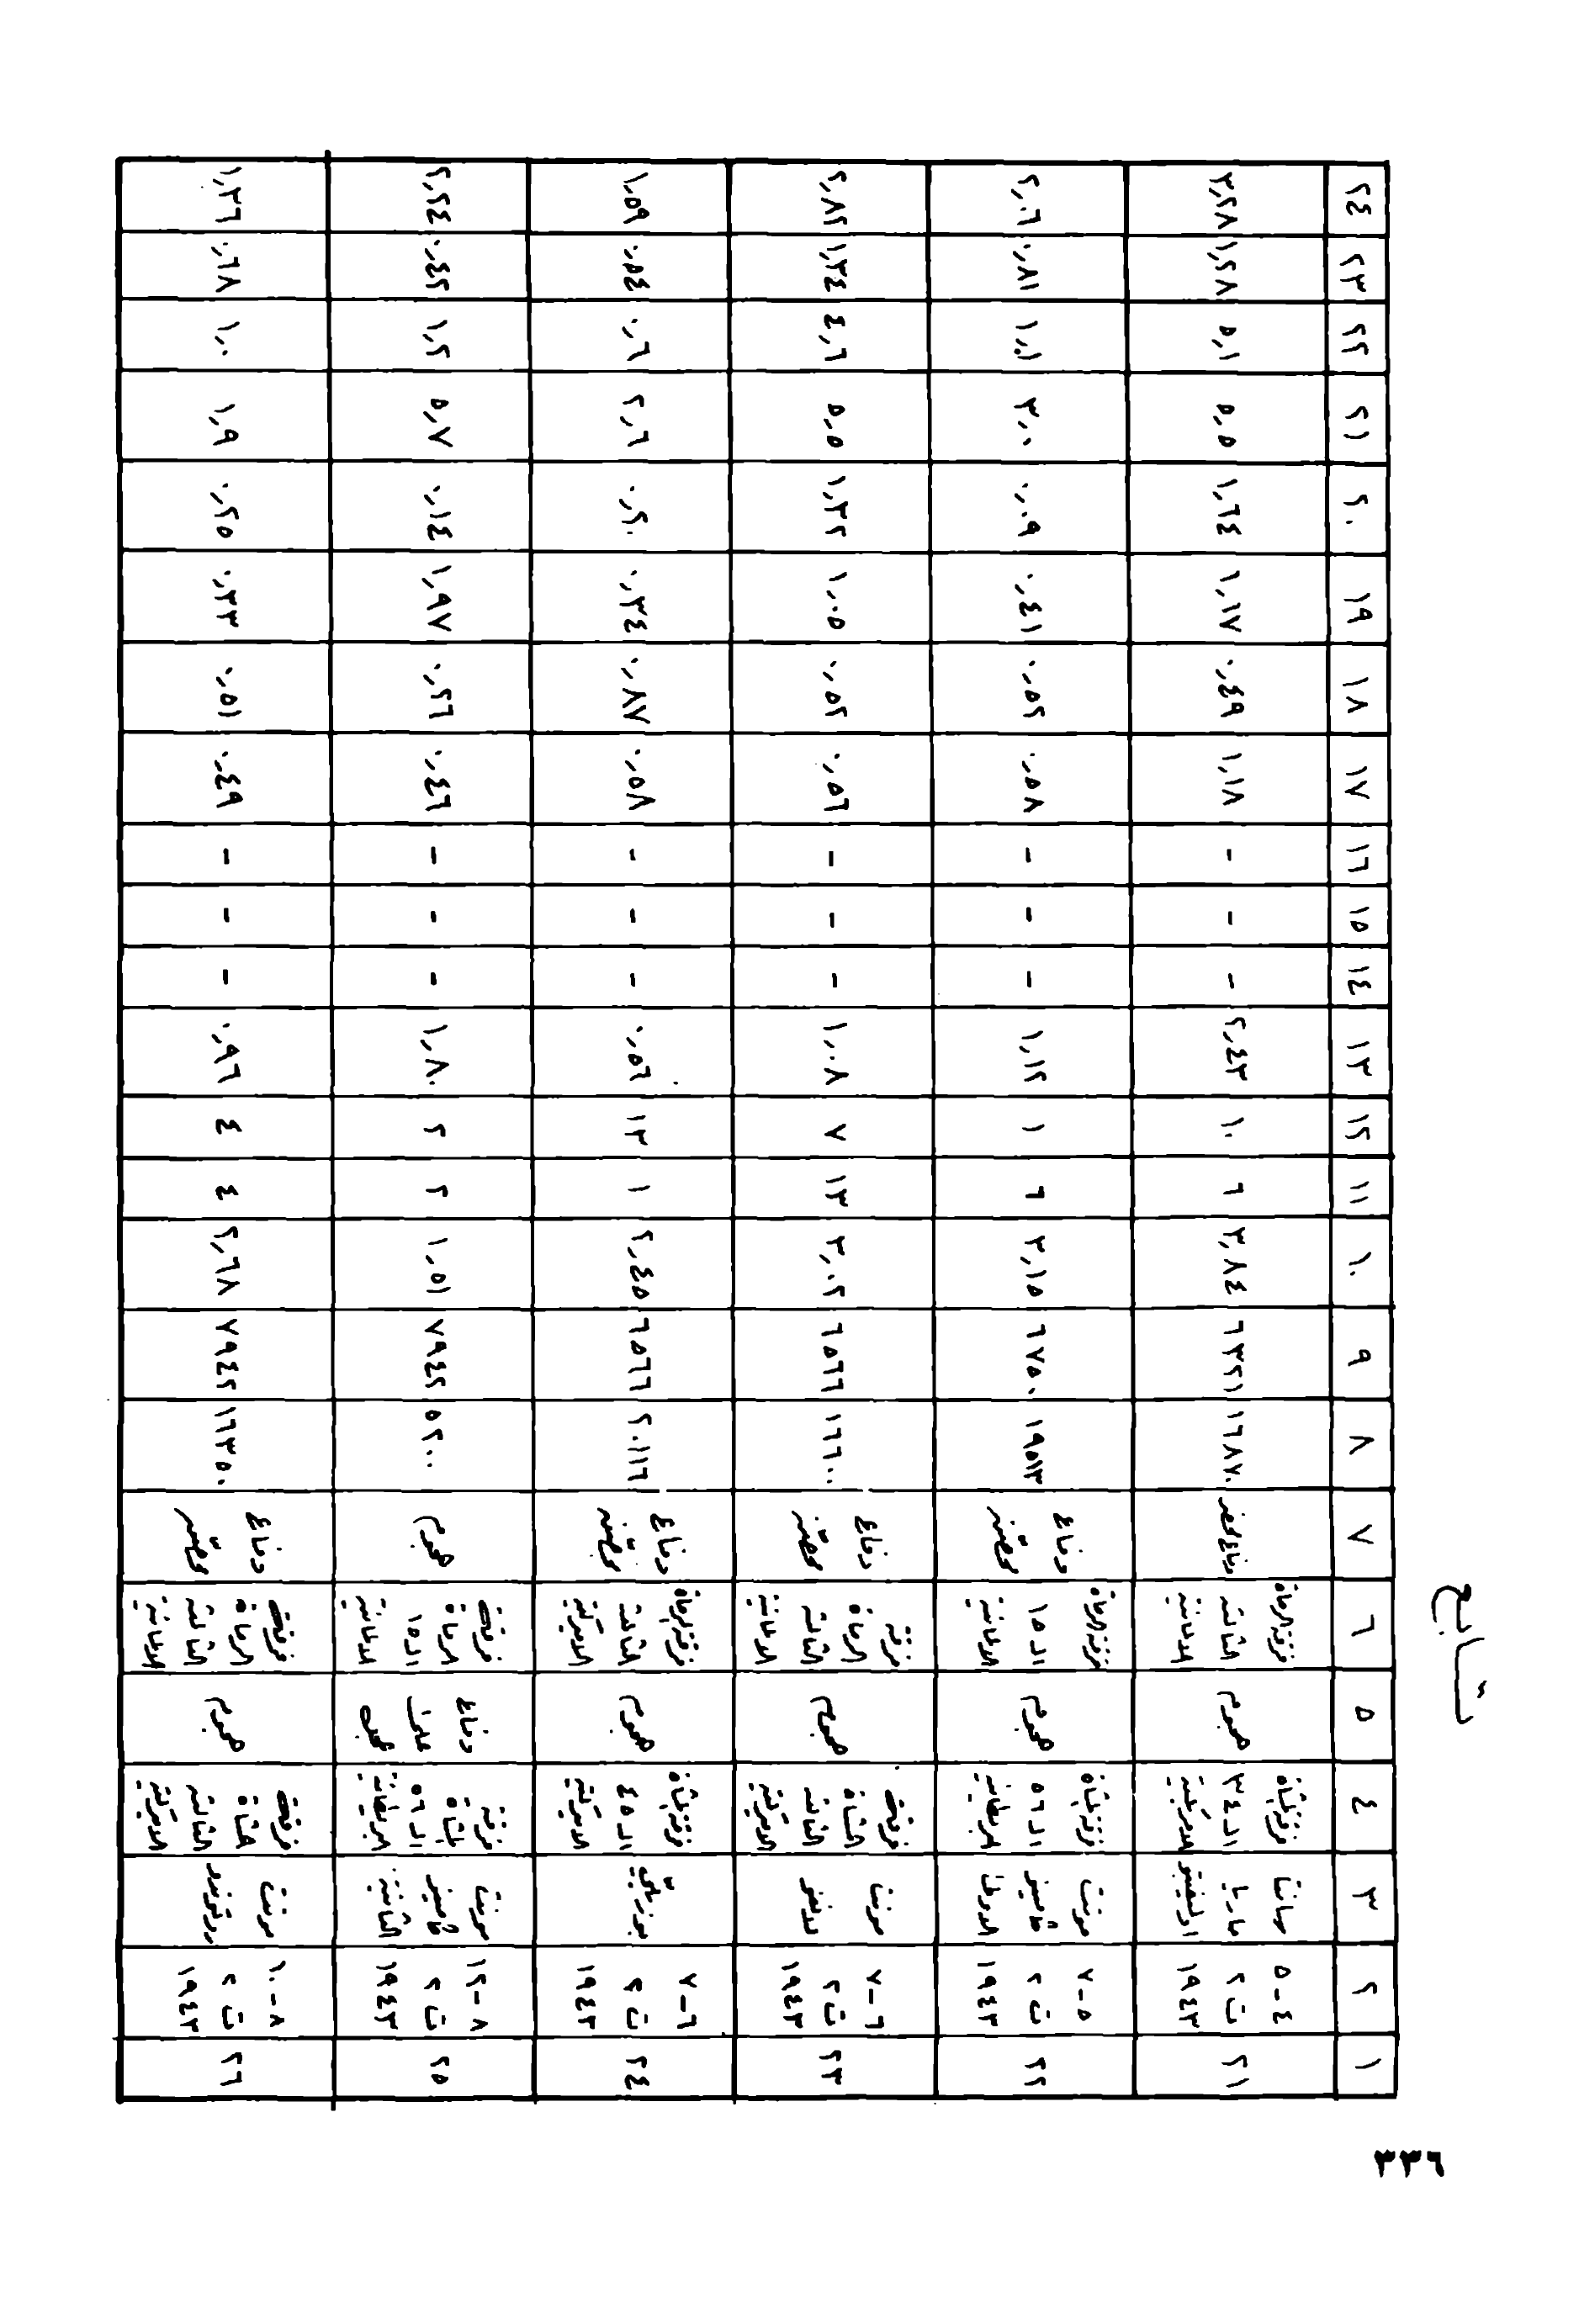 تابع
١ ٢ ٣ ٤ ٥ ٦ ٧ ٨ ٩ ١٠ ١١ ١٢ ١٣ ١٤ ١٥ ١٦ ١٧ ١٨ ١٩ ٢٠ ٢١ ٢٢ ٢٣ ٢٤
٢١ ٤-٥ ت٢ ١٩٤٣ سانتا ماريا اوليفيتو فرقة المشاة الـ ٣٤ الامريكية هجوم فرقة الرماة الثالثة الالمانية دفاع محضر ١٦٨٧٠ ٦٣٢١ ٣,٨٤ ٦ ١٠ ٢,٤٣ - - - ١,١٨ ٠,٤٩ ١,١٧ ١,٦٤ ٥,٥ ٥,١ ١,٢٨ ٣,٢٨
٢٢ ٥-٧ ت٢ ١٩٤٣ مونت كامينو الاولى فرقة المشاة الـ ٥٦ البريطانية هجوم فرقة الرماة الـ ١٥ الالمانية دفاع محصّن ١٩٥١٣ ٦٧٥٠ ٣,١٥ ٦ ١ ١,١٢ - - - ٠,٥٨ ٠,٥٢ ٠,٤١ ٠,٠٩ ٣,٠ ١,١ ٠,٨١ ٢,٠٦
٢٣ ٦-٧ ت٢ ١٩٤٣ مونت لونغو فرقة المشاة الثالثة الامريكية هجوم فرقة الرماة الثالثة الالمانية دفاع محصّن ١٦٦٠٠ ٦٥٦٦ ٣,٠٢ ١٣ ٧ ١,٠٨ - - - ٠,٥٦ ٠,٥٢ ١,٠٥ ١,٣٢ ٥,٥ ٤,٦ ١,٣٤ ٢,٨٢
٢٤ ٦-٧ ت٢ ١٩٤٣ بوزيلّي فرقة المشاة الـ ٤٥ الامريكية هجوم فرقة الرماة الثالثة الامريكية دفاع محصّن ٢٠١١٦ ٦٥٦٦ ٢,٤٥ ١ ١٣ ٠,٥٦ - - - ٠,٥٨ ٠,٨٧ ٠,٣٤ ٠,٢٠ ٢,٦ ٠,٦ ٠,٥٤ ١,٥٩
٢٥ ٨-١٢ ت٢ ١٩٤٣ مونت كامينو الثانية فرقة المشاة الـ ٥٦ البريطانية دفاع على عجل هجوم فرقة الرماة الـ ١٥ الالمانية هجوم ٥٢٠٠ ٧٩٤٢ ١,٥١ ٢ ٢ ١,٨٠ - - - ٠,٤٦ ٠,٢٦ ١,٩٧ ٠,١٤ ٥,٧ ١,٢ ٠,٤٢ ٢,٢٤
٢٦ ٨-١٠ ت٢ ١٩٤٣ مونت روتوندو فرقة مشاة الثالثة الامريكية هجوم فرقة الرماة الثالثة الالمانية دفاع محصّن ١٦٣٥٠ ٧٩٤٢ ٢,٦٨ ٤ ٤ ٠,٩٦ - - - ٠,٤٩ ٠,٥١ ٠,٣٣ ٠,٢٥ ١,٩ ١,٠ ٠,٦٨ ١,٣٦
٣٣٦